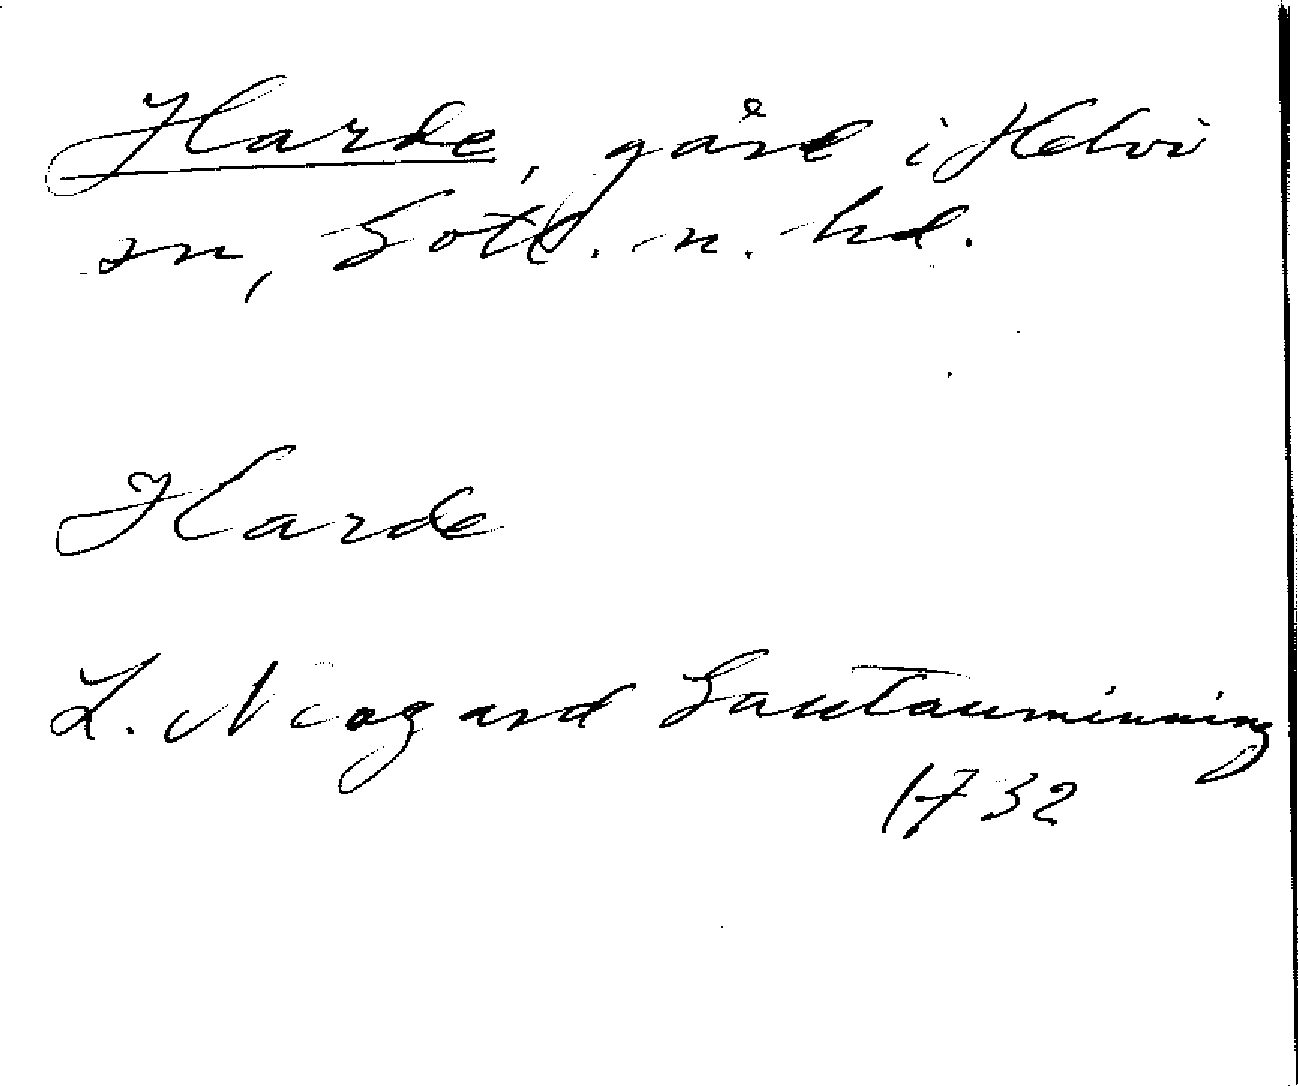 Harde, gård i Helvi
sn, Gotl. n. hd.
Harde
L. Neogard Gautauminning
1732